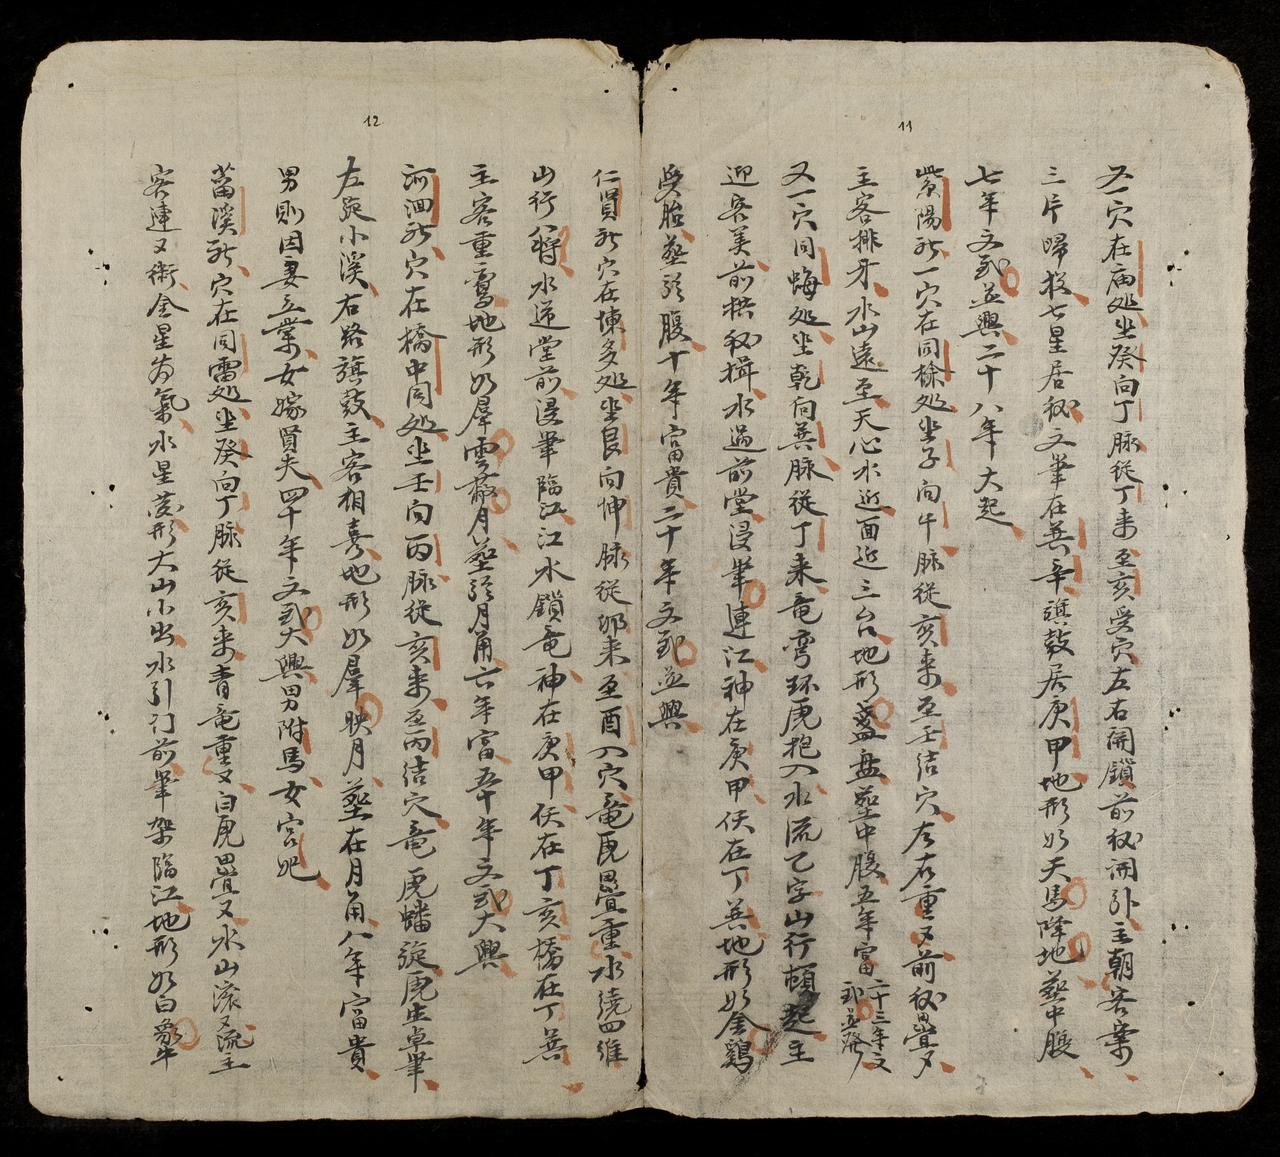 11
又一穴在庙処坐癸向丁脉從丁来至亥受穴左右開鎖前砂開引主朝客案
三片歸投七星居砂文筆在巽辛旗鼓居庚甲地形如天馬降地塟中腹
七年文武並興二十八年大起
紫陽社一穴在同榇処坐子向午脉從亥来至壬結穴左右重又前砂疊夕
主客排牙水山遠至天心水近面近三台地形盞盤塟中腹五年富二十三年文武並發
又一穴同梅処坐乾向巽脉從丁来竜弯环虎抱入水流乙字山行頓起主
迎客美前拱砂揖水過前堂浸筆連江神在庚甲伏在丁巽地形如金鷄
與胎塟於腹十年富貴二十年文武並興
12
仁賢社穴在棟多処坐艮向坤脉從邜来至酉入穴竜虎疊重水繞四維
山行公將水逆堂前浸筆臨江江水鎖竜神在庚甲伏在丁亥橋在丁巽
主客重舊地形如羣雲蔽月塟於月角六年富五十年文武大興
河洄社穴在橋中同処坐壬向丙脉從亥来至丙結穴竜虎蟠旋虎生卓筆
左旋小溪右路旗鼓主客相喜地形如羣映月塟在月角八年富貴
男則因妻立業女嫁賢夫四十年文武大興男附馬女宮妃
菑溪社穴在同雷処坐癸向丁脉從亥来青竜重又白虎疊又水山滚又流主
客連又術金星为氣水星茂形大山小出水引门前筆架臨江地形如白象牛